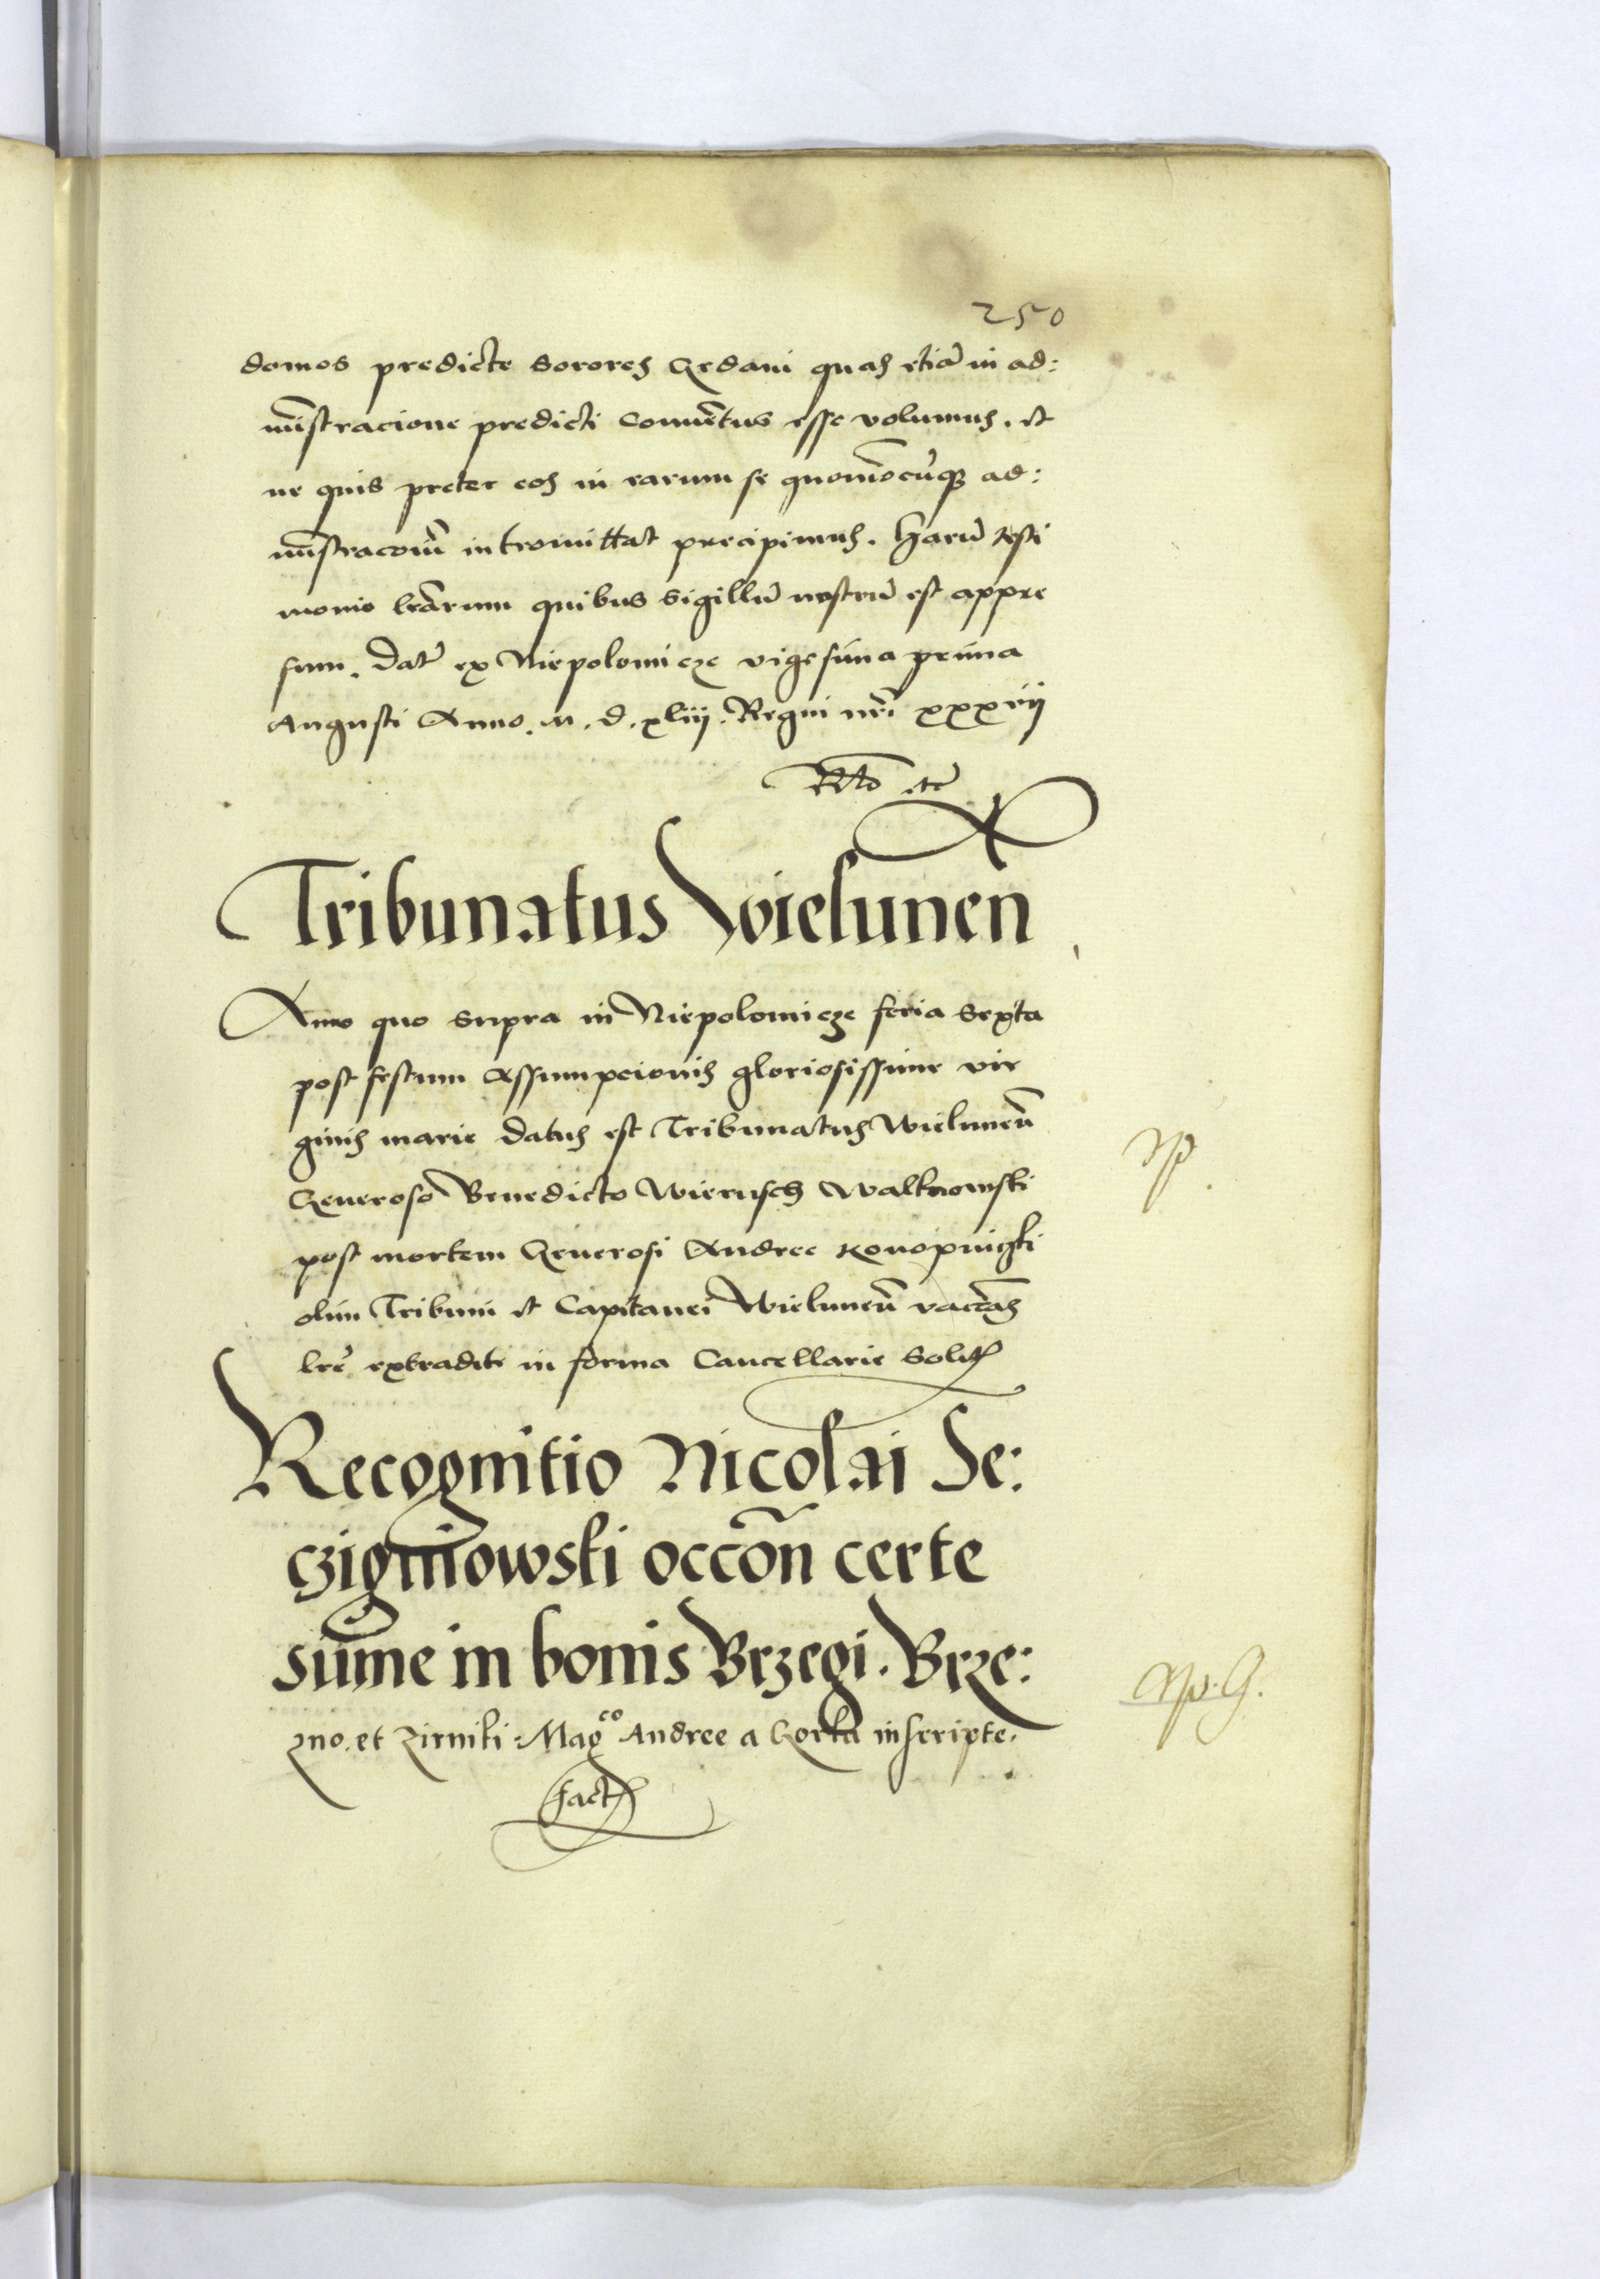 250
domos predicte Sorores Gedani quas etiã in ad:
mĩstracione predicti Conuẽtus esse volumus. et
ne quis preter eos in earum se quomõcũq ad:
mĩstracoñ intromittat precipimus. Harũ testi
monio lrãrum quibus Sigillũ nostrũ est appre
sum. Dat ex Niepolomicze vigesima prima
Augusti Anno. M. d. xliij. Regni nrĩ xxxvij
Rlo etc
Tribunatus Vielunen
Anno quo supra in Niepolomicze feria Sexta
post festum Assumpcionis gloriosissime vir
ginis marie datus est Tribunatus Wieluneñ
Generoso Benedicto Wierusch Walknowski
post mortem Generosi Andree Konopniczki
olim Tribuni et Capitanei Wieluneñ vacañs
lrẽ extradite in forma Cancellarie Solit
Recognitio Nicolai Se:
czigniowski occoñ certe
sum̃e in bonis Brzegi. Brze:
zno. et Zirniki. Magco Andree a Gorka inscripte.
fact
Np
Np. G.